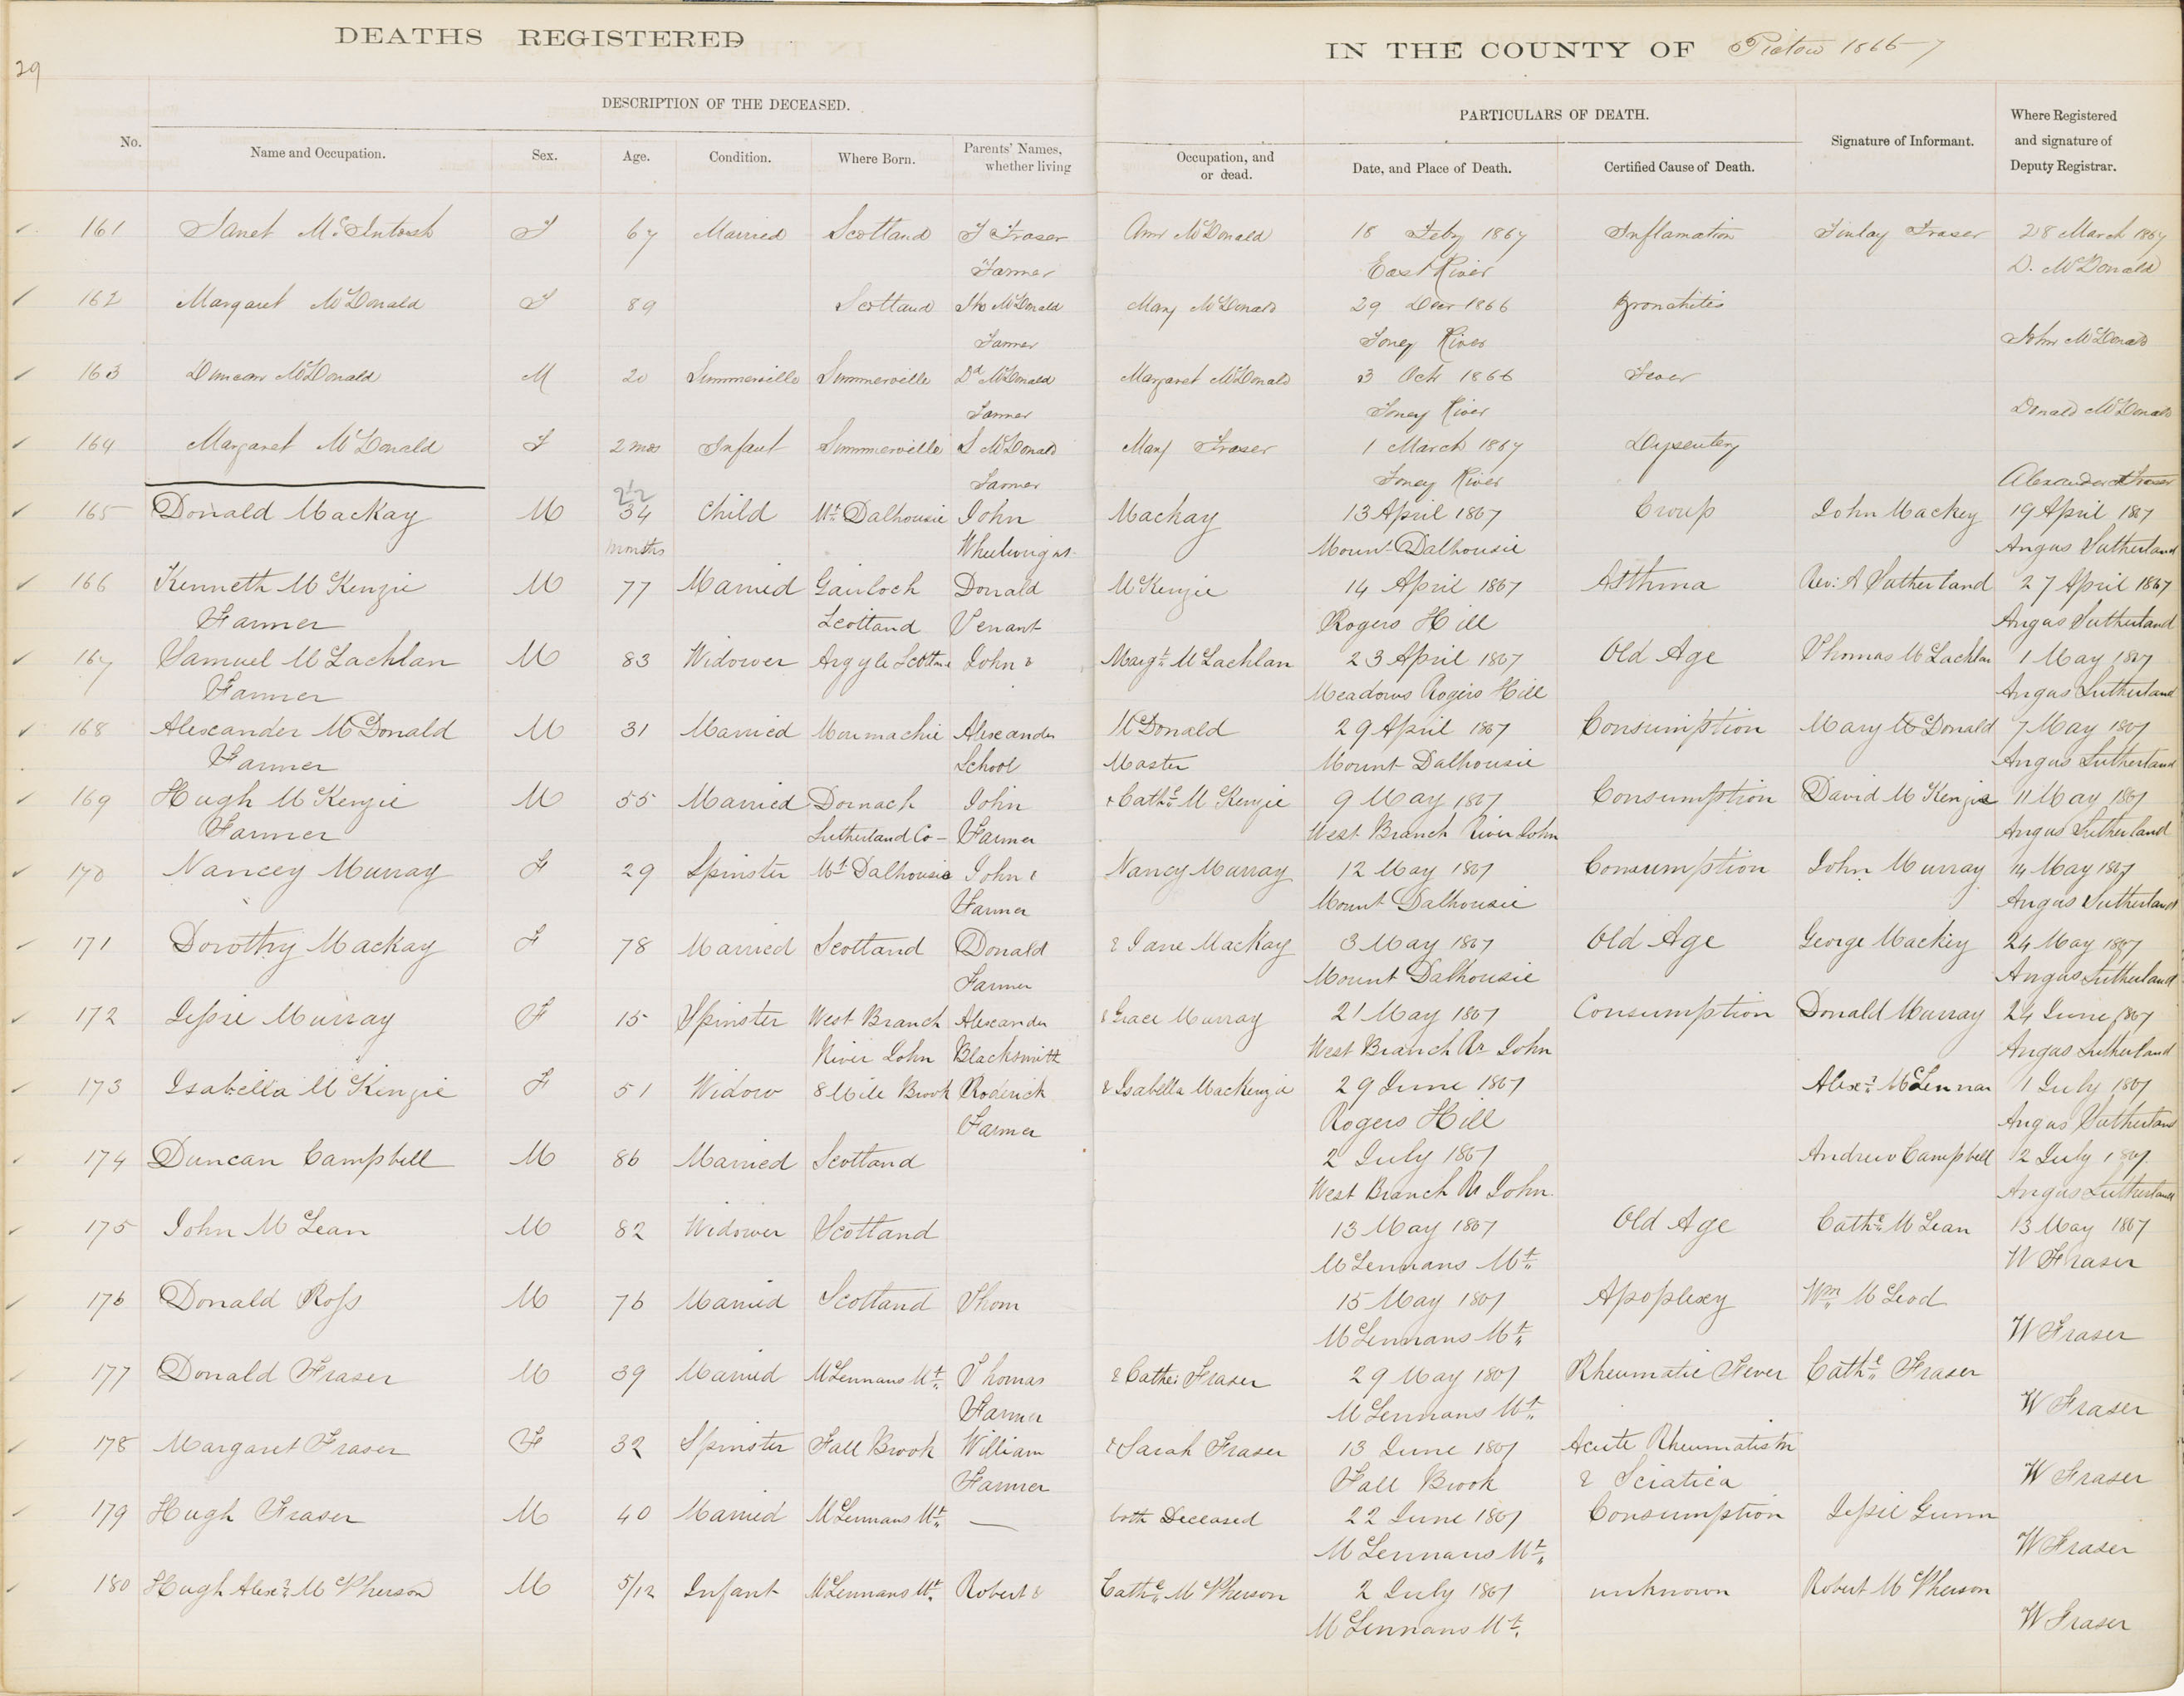 DEATHS REGISTERED IN THE COUNTY OF Pictou 1866-7
29
DESCRIPTION OF THE DECEASED. PARTICULARS OF DEATH.
No. Name and Occupation. Sex. Age. Condition. Where Born. Parents' Names, whether living Occupation, and or dead. Date, and Place of Death. Certified Cause of Death. Signature of Informant. Where Registered and signature of Deputy Registrar.
161 Janet McIntosh F 67 Married Scotland J Fraser Ann McDonald 18 Feby 1867 Inflamation Finlay Fraser 28 March 1867
Farmer East River D. McDonald
162 Margaret McDonald F 89 Scotland Jno McDonald Mary McDonald 29 Decr 1866 Bronchitis
Farmer Toney River John McDonald
163 Duncan McDonald M 20 Summerville Summerville Dd McDonald Margaret McDonald 3 Octr 1866 Fever
Farmer Toney River Donald McDonald
164 Margaret McDonald F 2 mos Infant Summerville S McDonald Mary Fraser 1 March 1867 Dysentery
Farmer Toney River Alexander Fraser
165 Donald MacKay M 34 Child Mt Dalhousie John Mackay 13 April 1867 Croup John Mackey 19 April 1867
months Mount Dalhousie Angus Sutherland
166 Kenneth McKenzie M 77 Married Gairloch Donald McKenzie 14 April 1867 Asthma Rev: A Sutherland 27 April 1867
Farmer Scotland Tenant Rogers Hill Angus Sutherland
167 Samuel McLachlan M 83 Widower Argyle Scotland John & Margt McLachlan 23 April 1867 Old Age Thomas McLachlan 1 May 1867
Farmer Meadows Rogers Hill Angus Sutherland
168 Alexander McDonald M 31 Married Alexander McDonald 29 April 1867 Consumption Mary McDonald 7 May 1867
Farmer School Master Mount Dalhousie Angus Sutherland
169 Hugh McKenzie M 55 Married Dornach John & Cathe McKenzie 9 May 1867 Consumption David McKenzie 11 May 1867
Farmer Sutherland Co- Farmer West Branch River John Angus Sutherland
170 Nancey Murray F 29 Spinster Mt Dalhousie John & Nancy Murray 12 May 1867 Consumption John Murray 14 May 1867
Farmer Mount Dalhousie Angus Sutherland
171 Dorothy Mackay F 78 Married Scotland Donald & Jane MacKay 3 May 1867 Old Age George Mackey 24 May 1867
Farmer Mount Dalhousie Angus Sutherland
172 Jessie Murray F 15 Spinster West Branch Alexander & Grace Murray 21 May 1867 Consumption Donald Murray 24 June 1867
River John Blacksmith West Branch Rr John Angus Sutherland
173 Isabella McKenzie F 51 Widow 8 Mile Brook Roderick & Isabella Mackenzie 29 June 1867 Alexr McLennan 1 July 1867
Farmer Rogers Hill Angus Sutherland
174 Duncan Campbell M 86 Married Scotland 2 July 1867 Andrew Campbell 2 July 1867
West Branch Rr John Angus Sutherland
175 John McLean M 82 Widower Scotland 13 May 1867 Old Age Cathe McLean 13 May 1867
McLennans Mt W Fraser
176 Donald Ross M 76 Married Scotland Thom 15 May 1867 Apoplexy Wm McLeod
McLennans Mt W Fraser
177 Donald Fraser M 39 Married McLennans Mt Thomas & Cathe: Fraser 29 May 1867 Rheumatic Fever Cathe Fraser
Farmer McLennans Mt W Fraser
178 Margaret Fraser F 32 Spinster Fall Brook William & Sarah Fraser 13 June 1867 Acute Rheumatism
Farmer Fall Brook & Sciatica W Fraser
179 Hugh Fraser M 40 Married McLennans Mt — both Deceased 22 June 1867 Consumption Jessie Gunn
McLennans Mt W Fraser
180 Hugh Alexr McPherson M 5/12 Infant McLennans Mt Robert & Cathe McPherson 2 July 1867 unknown Robert McPherson
McLennans Mt W Fraser